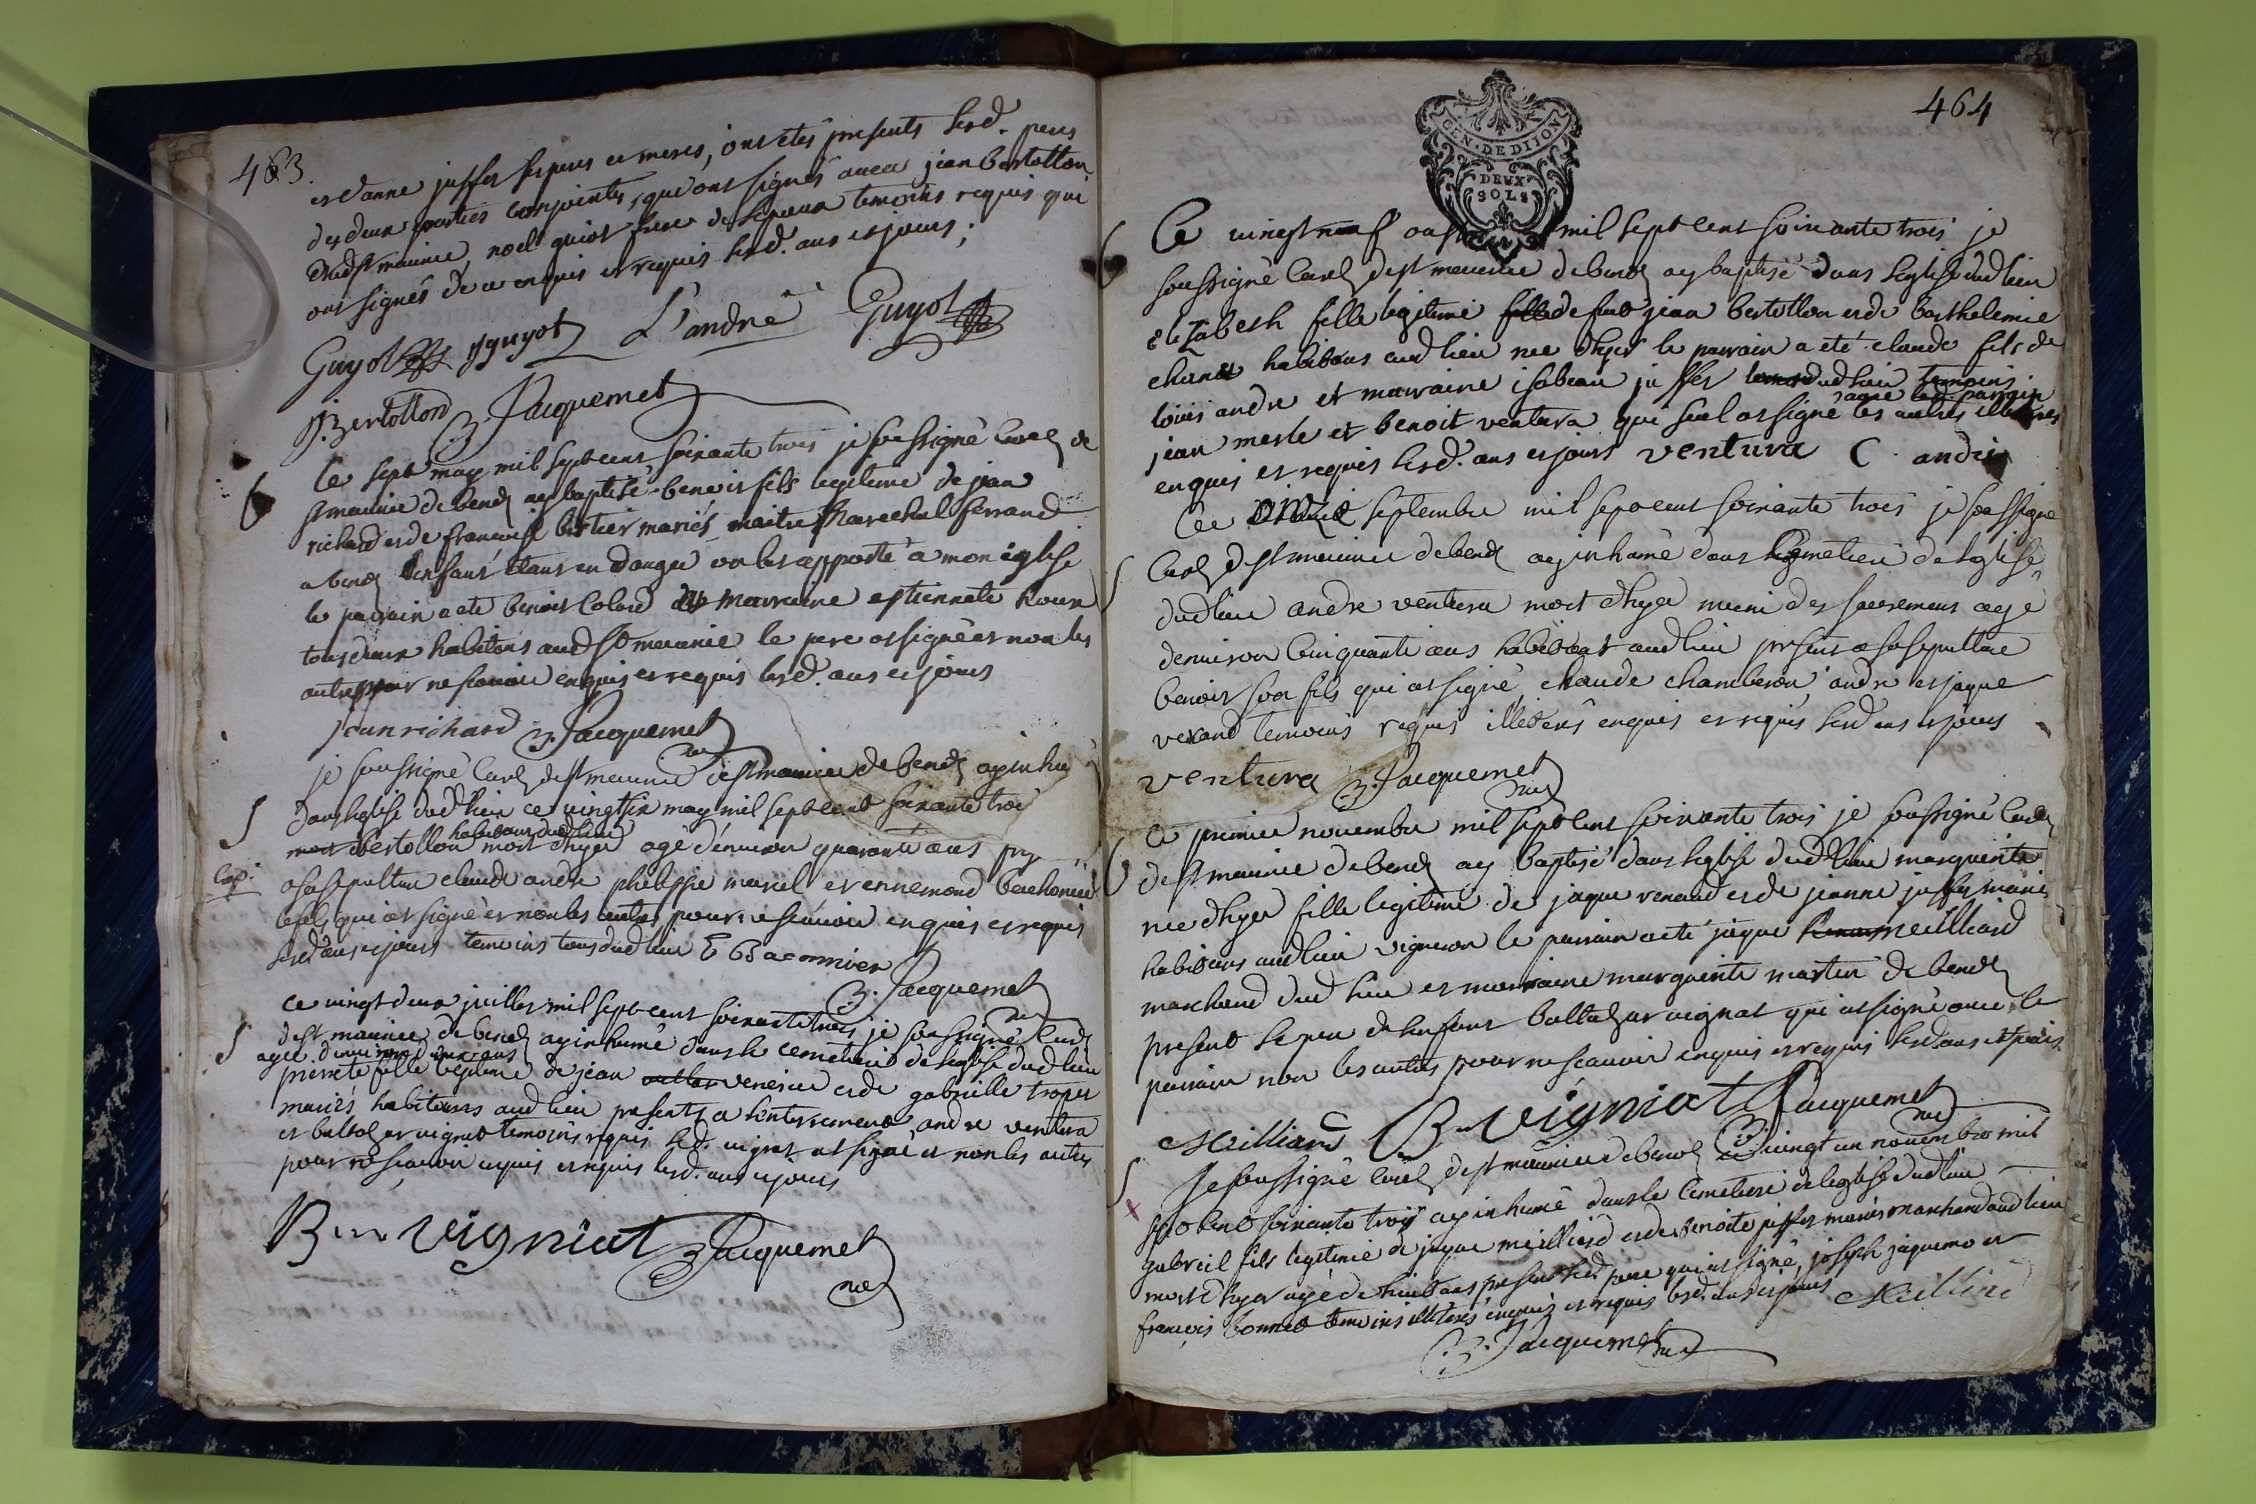 463.
et d'anne juffet ses pere et meres, ont etés presents lesd. peres
des deux parties conjointes, qui ont signés avec jean bertollon
dud st maurice, noel guiot frere de lepoux temoins requis qui
ont signés de ce enquis et requis lesd. ans et jours;
Guyot yguyot L'andré Guyot
J Bertollond B. Jacquemet
Ce sept may mil sept cent soixante trois je soussigné curé de
st maurice de benoz ay baptisé benoit fils legitime de jean
richard et de francoise bertier mariés maitre marechal ferrand
a benoz l'enfant etant en danger on l'at apporté a mon église
le parrain a eté benoit Colard et marraine estiennete
tous deux habitans aud st maurice le pere at signé et non les
autres pour ne scavoir enquis et requis lesd. ans et jours
jean richard B. Jacquemet
curé
je soussigné curé de st maurice de st maurice de benoz ay inhumé
dans leglise dud lieu ce vingt six may mil sept cent soixante trois
habitant dud lieu
bertollon mort d'hyer agé d'environ quarante ans
a sa sepulture claude andre philippe muriel et ennemond
le fils qui at signé et non les autres pour ne scavoir enquis et requis
lesd ans et jours temoins tous dud lieu E Baconnier
B. Jacquemet
curé
Ce vingt deux juillet mil sept cent soixante trois je soussigné curé
de st maurice de benoz ay inhumé dans le cemetiere de leglise dud lieu
agée d'environ deux ans
pierrete fille legitime de jean veneire et de gabrielle troper
mariés habitants aud lieu presents a l'enterrement andre ventura
et baltazar vignat temoins requis led. vignat at signé et non les autres
pour ne scavoir enquis et requis lesd. ans et jours
B vigniat B Jacquemet
curé
464
GEN. DE DIJON
DEUX
SOLS
Ce vingt neuf oust mil sept cent soixante trois je
soussigné curé de st maurice de benoz ay baptisé dans leglise dud lieu
elizabeth fille legitime fille de feu jean bertollon et de barthelemie
habitans aud lieu née d'hyer le parrain a eté claude fils de
louis andre et marraine isabeau juffet dud lieu temoins
avec led parrain
jean merle et benoit ventura qui seul at signé les autres illiteres
enquis et requis lesd. ans et jours ventura C. andre
Ce onze septembre mil sept cent soixante trois je soussigné
Curé de st maurice de benoz ay inhumé dans le cemetiere de leglise
dud lieu andre ventura mort d'hyer muni des sacrements agé
denviron cinquante ans habitant aud lieu present a sa sepulture
benoit son fils qui at signé, claude chamberon, andre et jaque
verand temoins requis illiterés enquis et requis lesd ans et jours
ventura B. Jacquemet
curé
Ce premier novembre mil sept cent soixante trois je soussigné curé
de st maurice de benoz ay baptisé dans leglise dud lieu marguerite
née d'hyer fille legitime de jaque renaud et de jeanne juffet mariés
habitans aud lieu vigneron le parrain a eté jaque meilliard
marchand dud lieu et marraine marguerite martin de benoz
present le pere de lenfant baltazar vignat qui at signé avec le
parrain non les autres pour ne scavoir enquis et requis lesd ans et jours.
Meilliard B vigniat B. Jacquemet
curé
Je soussigné curé de st maurice de benoz ce vingt un novembre mil
sept cent soixante trois ay inhumé dans le cemetiere de leglise dud lieu
gabreil fils legitime de jaque meilliard et de benoite juffet mariés marchand aud lieu
mort d'hyer agé de huit ans present led. pere qui at signé, joseph jaquemo et
francois bonnet temoins illiterés enquis et requis lesd. ans et jours Meilliard
B. Jacquemet curé